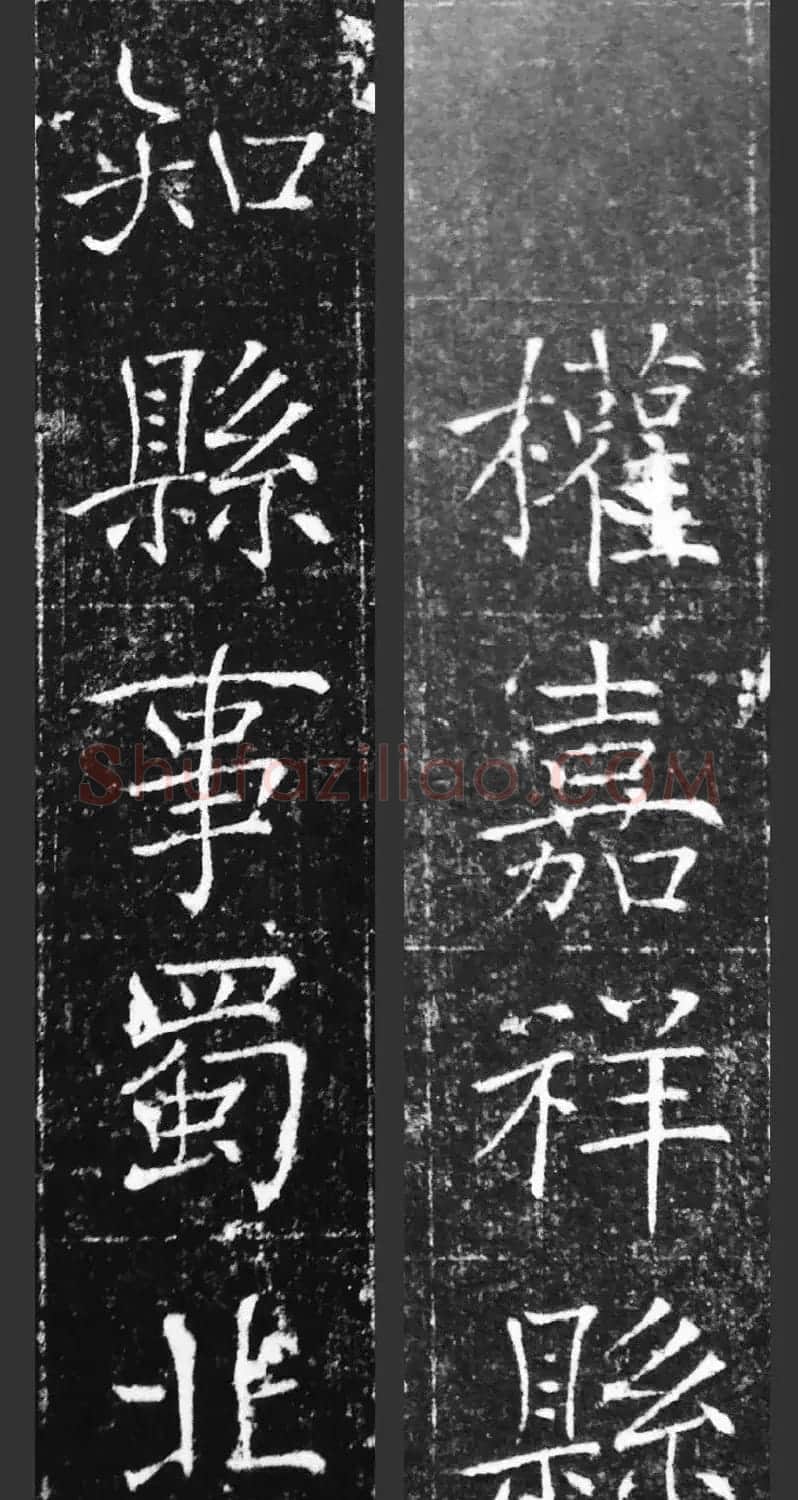 權嘉祥縣
知縣事蜀北
Shufaziliao.COM